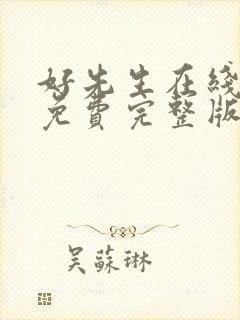 好先生在綫
免費完整版
吳蘇琳